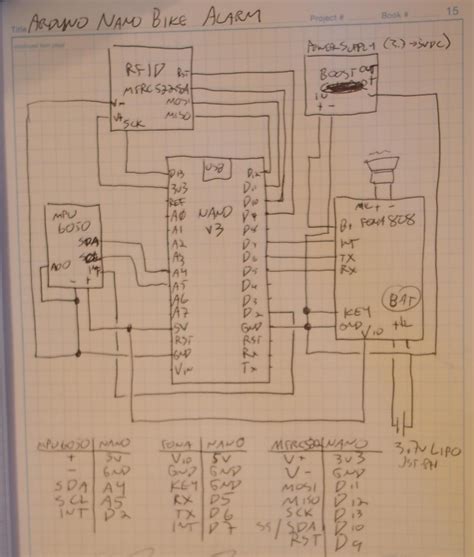 Title ARDUINO NANO BIKE ALARM
Project #
Book #
15
RFID
MFRC522
RST
SDA
MOSI
MISO
V-
V+
SCK
POWER SUPPLY
5VDC)
BOOST
OUT
+ -
USB
NANO
V3
D13
3V3
REF
A0
A1
A2
A3
A4
A5
A6
A7
5V
RST
GND
VIN
D12
D11
D10
D9
D8
D7
D6
D5
D4
D3
D2
GND
RST
RX
TX
MPU
6050
SDA
INT
ADO
- +
MIC + -
FONA 808
B+
INT
TX
RX
KEY
GND
VIO
BAT
3.7V LIPO
JST-PH
MPU6050 NANO
+ 5V
- GND
SDA A4
SCL A5
INT D2
FONA NANO
VIO 5V
GND GND
KEY GND
RX D5
TX D6
INT D7
MFRC522 NANO
V+ 3V3
V- GND
MOSI D11
MISO D12
SCK D13
SS/SDA D10
RST D9